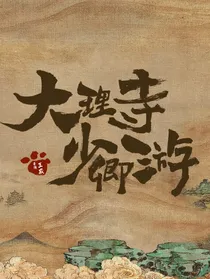 大理寺
少卿游